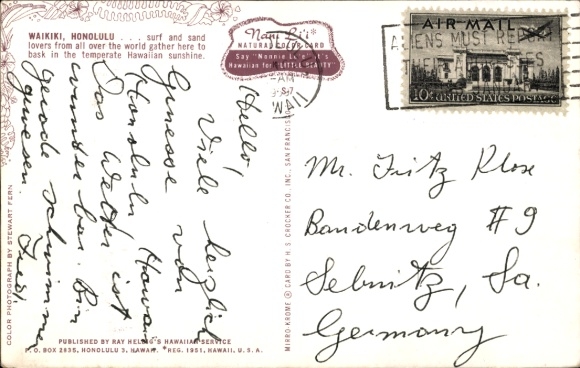 WAIKIKI, HONOLULU . . . surf and sand
lovers from all over the world gather here to
bask in the temperate Hawaiian sunshine.
Nani Li'i*
NATURAL COLOR CARD
Say "Nonnie Lee" It's
Hawaiian for "LITTLE BEAUTY"
AIR MAIL
ALIENS MUST REPORT
10¢ UNITED STATES POSTAGE
AM
HAWAII
Hello!
Viele herzlich
Gruesse von
Honolulu Hawai
Das Wetter ist
wunderbar. Bin
gerade schwimmen
gewesen.
Mr. Fritz Klose
Bandenweg #9
Sebnitz, Sa.
Germany
COLOR PHOTOGRAPH BY STEWART FERN
MIRRO-KROME ® CARD BY H. S. CROCKER CO., INC., SAN FRANCISC
PUBLISHED BY RAY HELBIG'S HAWAIIAN SERVICE
P. O. BOX 2835, HONOLULU 3, HAWAII. *REG. 1951, HAWAII, U. S. A.